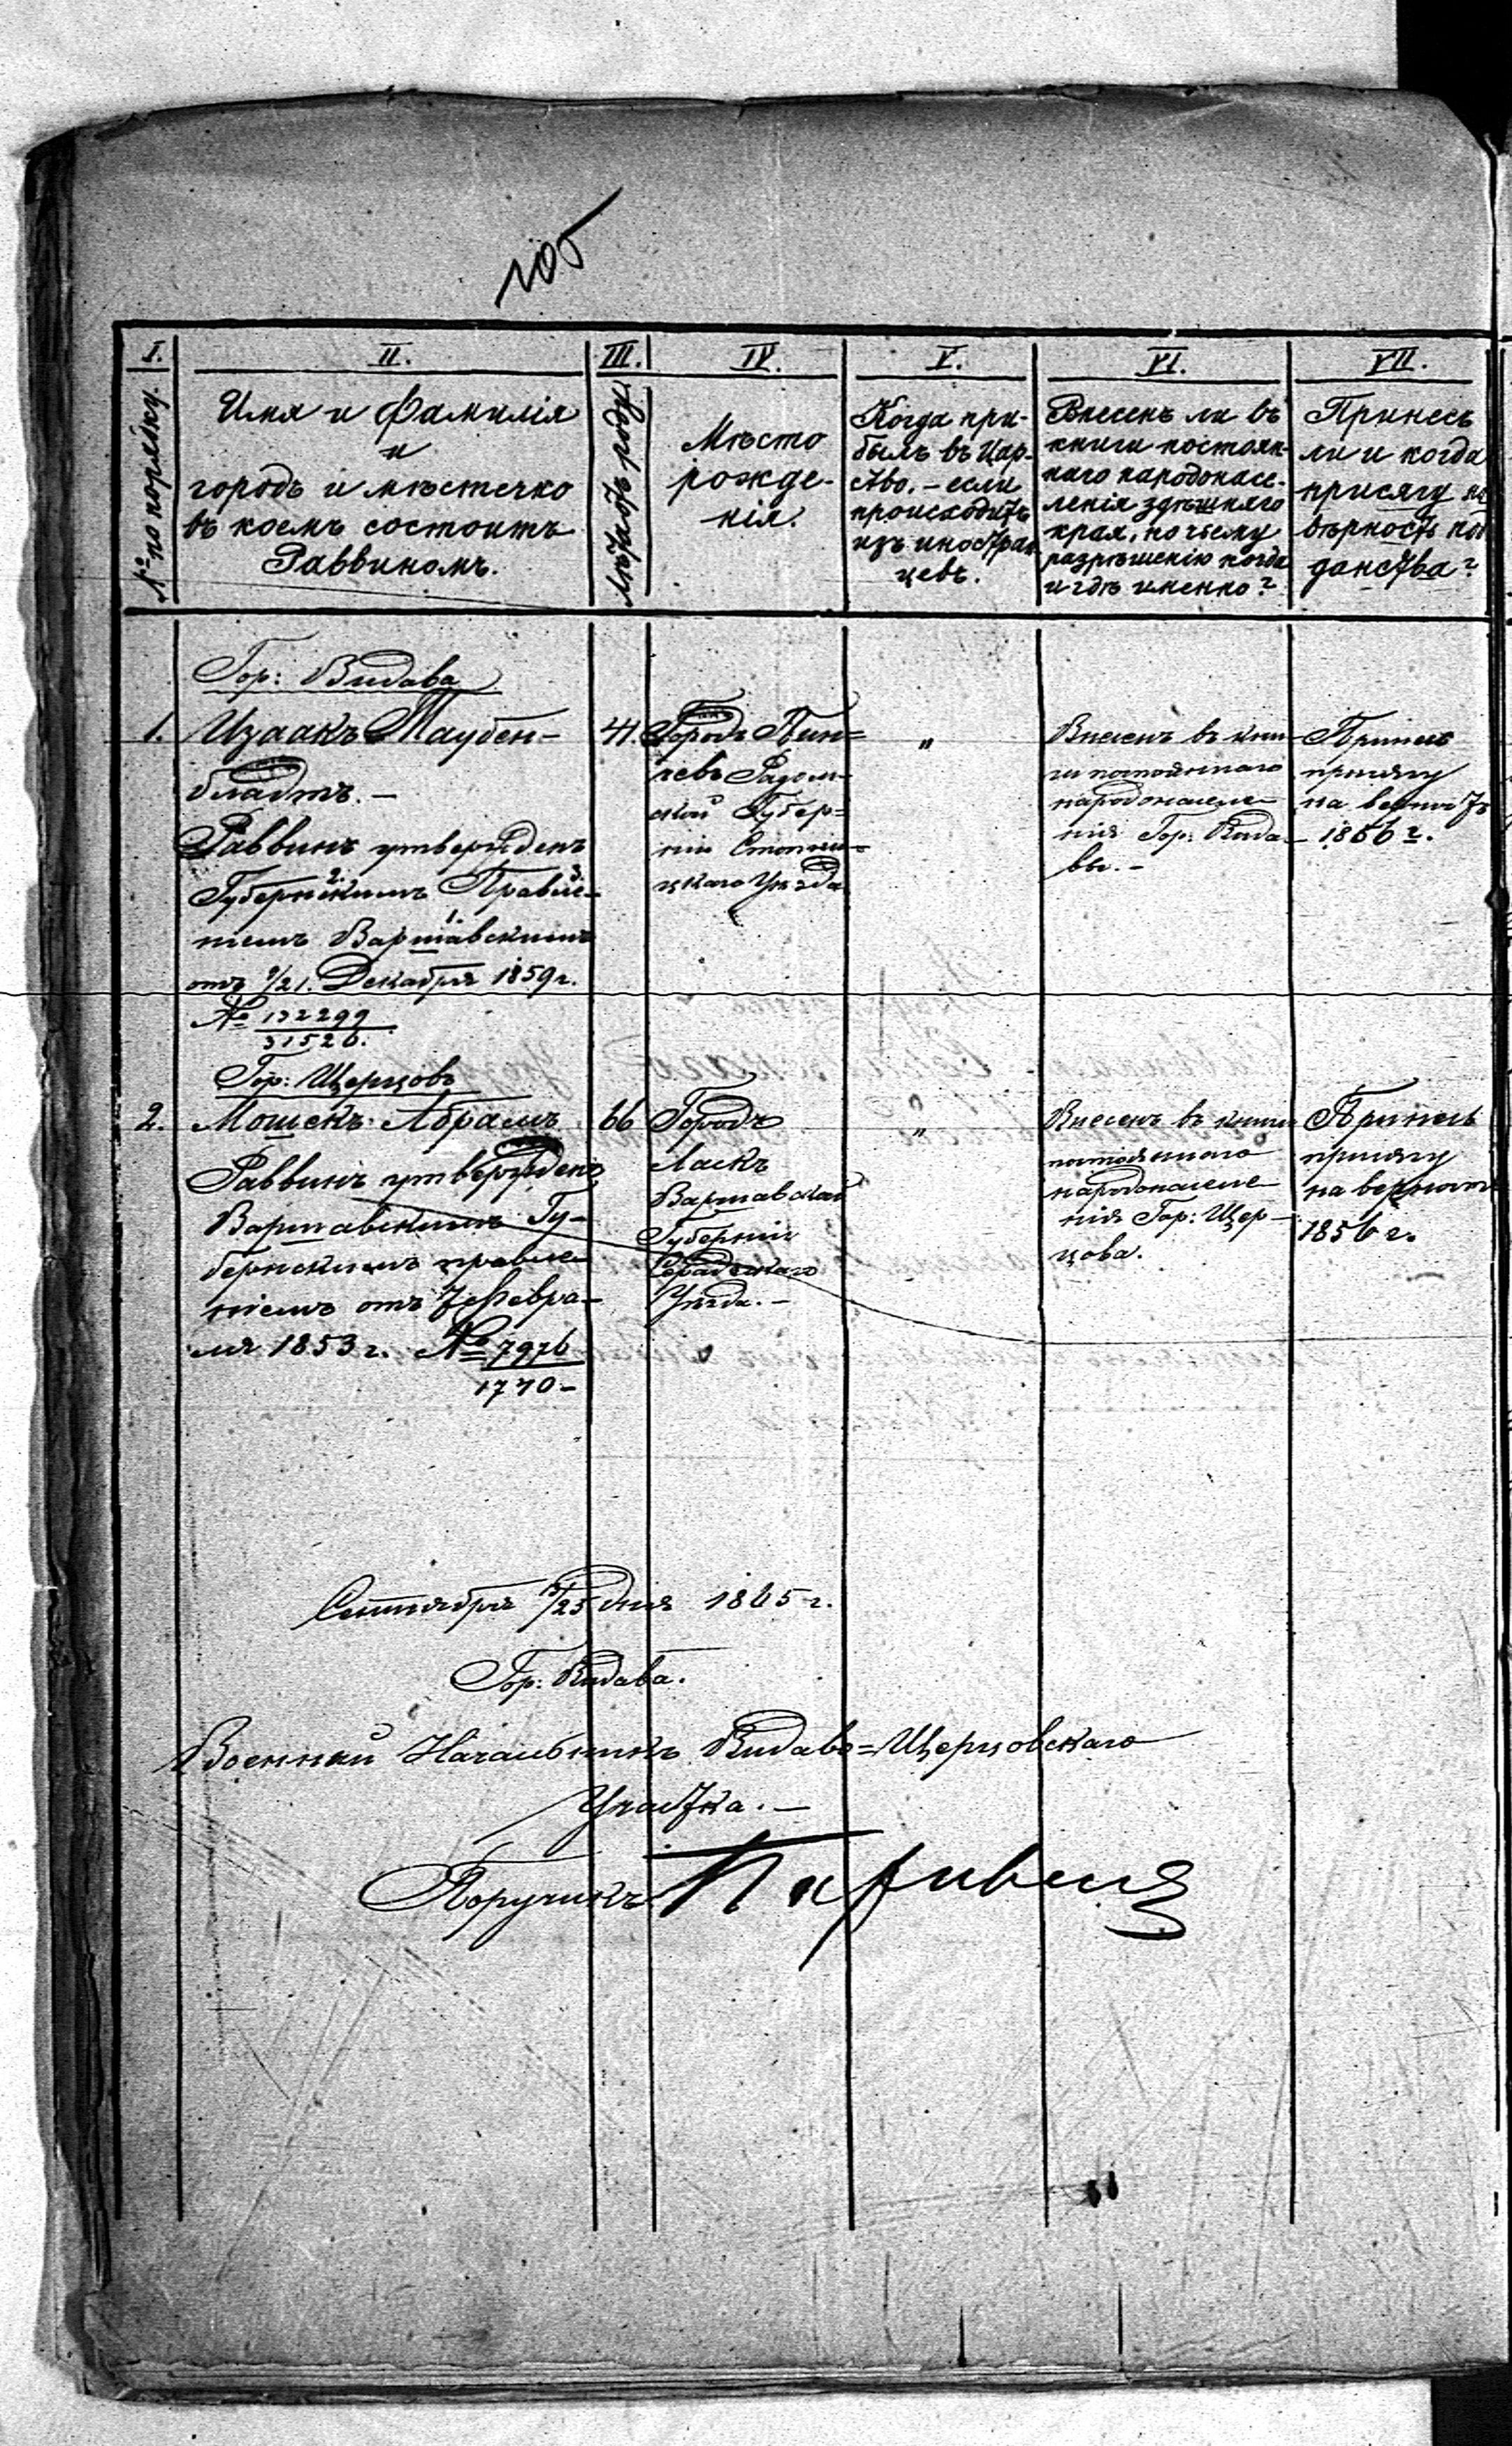 105
I.
№ по порядку.
II.
Имя и Фамилія
и
городъ и мѣстечко
въ коемъ состоитъ
Раввиномъ.
III.
IV.
Мѣсто
рожде-
нія.
V.
Когда при-
былъ въ Цар-
ство. – если
происходитъ
изъ иностран
цевъ.
VI.
Внесенъ ли въ
книги постоян-
наго народонасе-
ленія здѣшняго
края, по чьему
разрѣшенію когда
и гдѣ именно?
VII.
Принесъ
ли и когда
присягу на
вѣрность под
данства?
Гор: Видава
1.
Изаакъ Таубен-
блатъ. –
Раввинъ утвержденъ
2. 3.
Губернскимъ Правле-
1.
ніемъ Варшавскимъ
отъ 9/21. Декабря 1859 г.
№ 132299
31526.
44.
Городъ Пин-
чевъ Радом-
ской Губер=
ніи Стопни-
цкаго Уѣзда
"
Внесенъ въ кни
ги постояннаго
народонаселе-
нія Гор: Вида-
вы. –
Принесъ
присягу
на верность
1856 г.
Гор: Щерцовъ
2.
Мошекъ Абрамъ
Раввинъ утвержденъ
Варшавскимъ Гу-
бернскимъ правле
ніемъ отъ 7 Февра-
ля 1853 г. № 7976
1770 –
66
Городъ
Ласкъ
Варшавской
Губерніи
Серадзскаго
Уѣзда. –
"
Внесенъ въ книги
постояннаго
народонаселе-
нія Гор: Щер-
цова.
Принесъ
присягу
на верность
1856 г.
Сентября 13/25 дня 1865 г.
Гор: Видава.
Военный Начальникъ Видаво=Щерцовскаго
Участка. –
Поручикъ